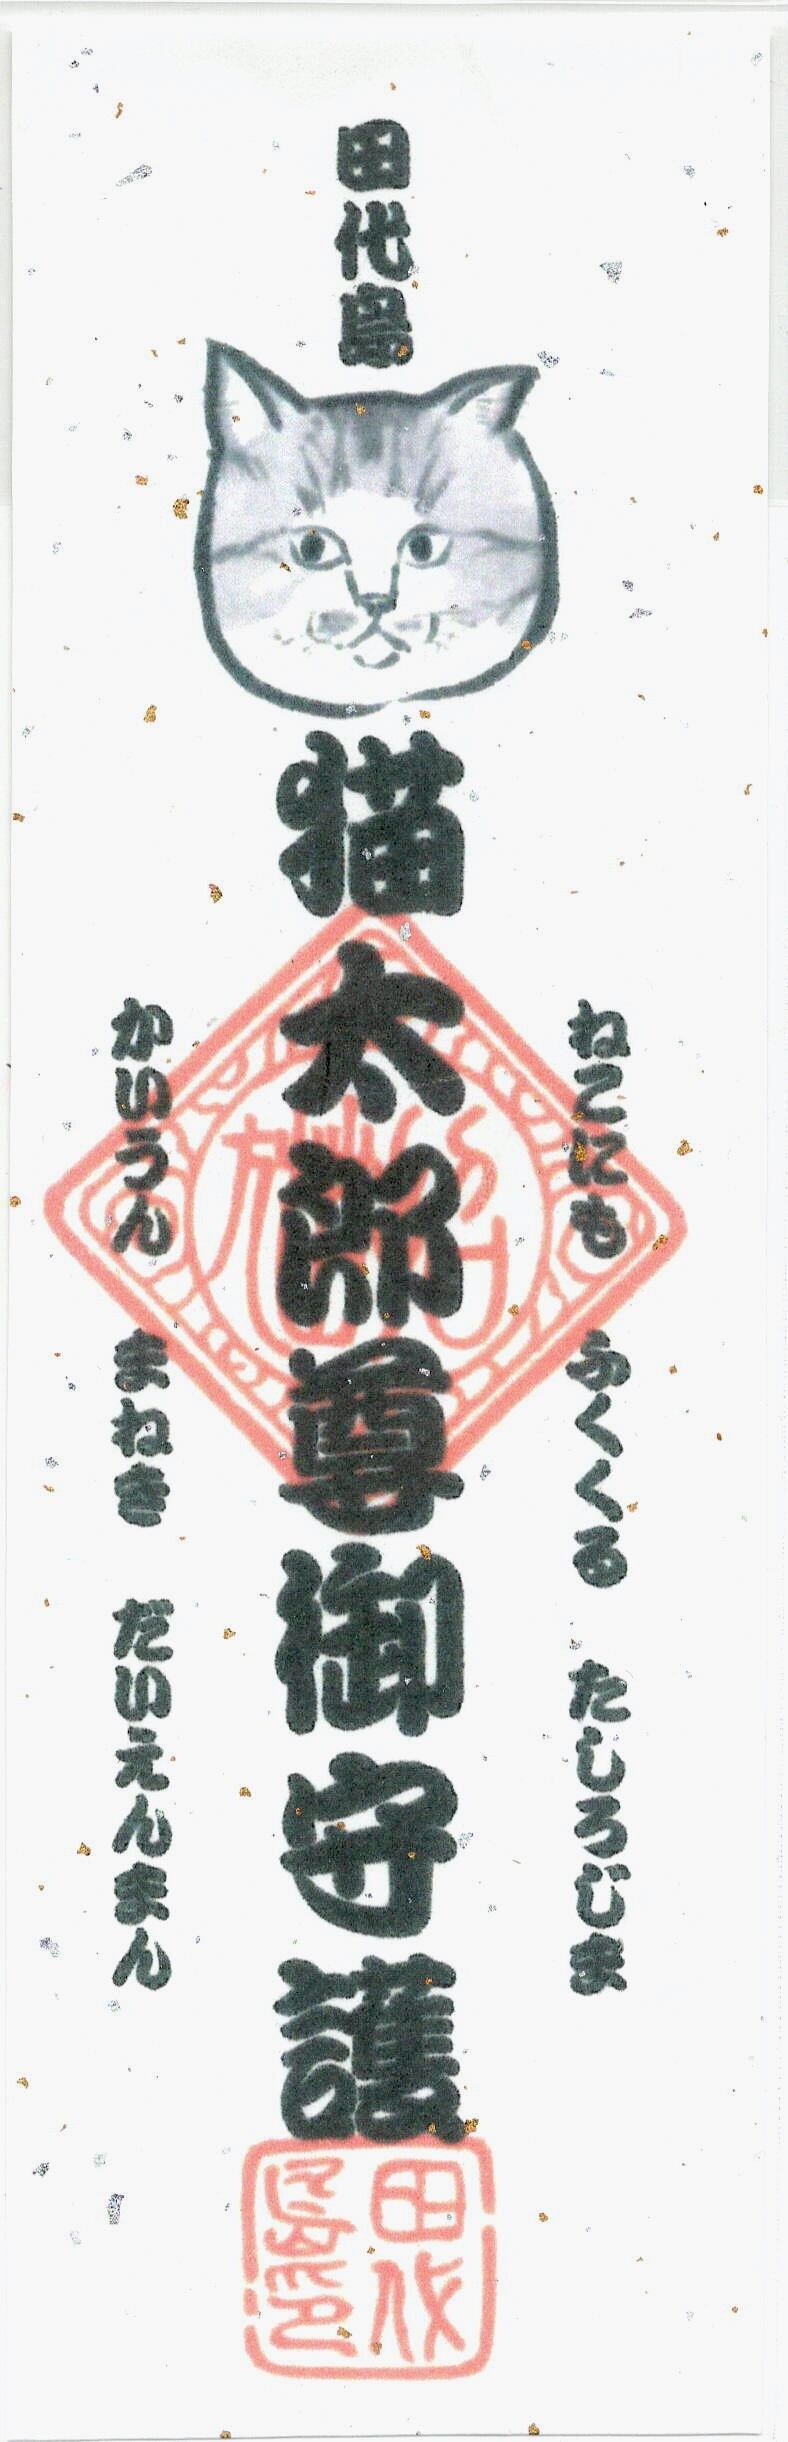 田代島
猫太郎尊御守護
ねこにも ふくくる たしろじま
かいうん まねき だいえんまん
田代
島